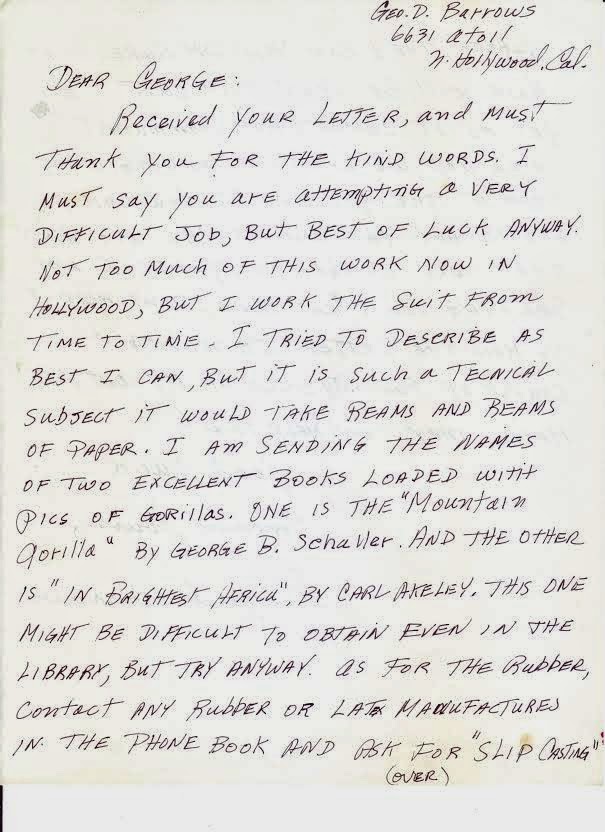 Geo. D. Barrows
6631 Atoll
N. Hollywood. Cal.
DEAR GEORGE:
Received YOUR LETTER, and MUST
THANK YOU FOR THE KIND WORDS. I
MUST SAY YOU ARE ATTEMPTING A VERY
DIFFICULT JOB, BUT BEST OF LUCK ANYWAY.
NOT TOO MUCH OF THIS WORK NOW IN
HOLLYWOOD, BUT I WORK THE SUIT FROM
TIME TO TIME. I TRIED TO DESCRIBE AS
BEST I CAN, BUT IT IS SUCH A TECNICAL
SUBJECT IT WOULD TAKE REAMS AND REAMS
OF PAPER. I AM SENDING THE NAMES
OF TWO EXCELLENT BOOKS LOADED WITH
PICS OF GORILLAS. ONE IS THE "Mountain
Gorilla" BY GEORGE B. Schaller. AND THE OTHER
IS "IN BRIGHTEST AFRICA", BY CARL AKELEY. THIS ONE
MIGHT BE DIFFICULT TO OBTAIN EVEN IN THE
LIBRARY, BUT TRY ANYWAY. AS FOR THE Rubber,
Contact ANY Rubber OR LATEX MANUFACTURES
IN THE PHONE BOOK AND ASK FOR "SLIP CASTING"
(OVER)